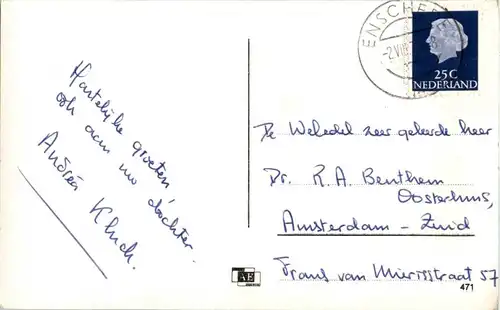 Hartelijke groeten,
ook aan uw dochter.
Andréa Kluck.
ENSCHEDE
-2.VIII
25C
NEDERLAND
De Weledel zeer geleerde heer
Dr. R.A. Benthem
Oosterhuis,
Amsterdam - Zuid
Frans van Mierisstraat 57
AE
471